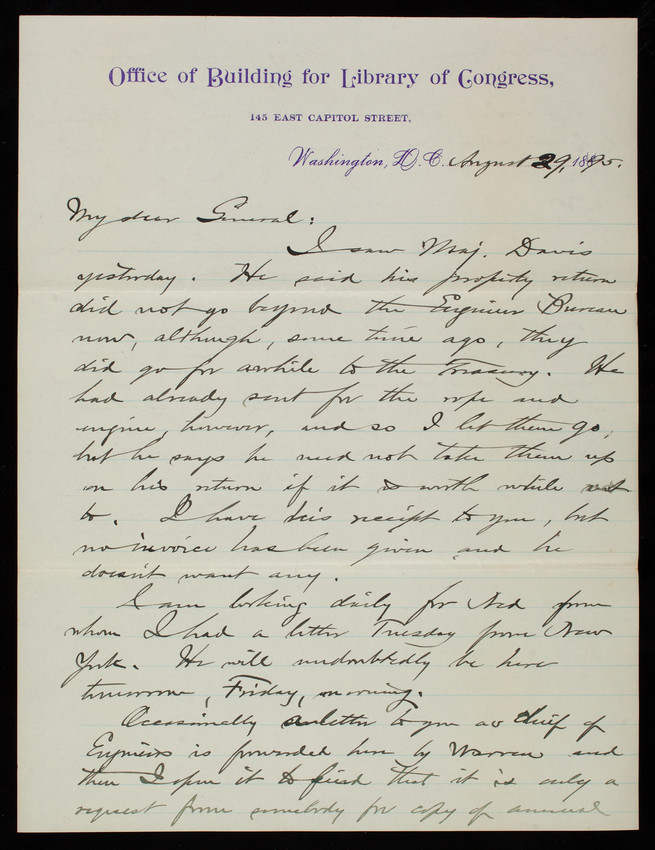 Office of Building for Library of Congress,
145 EAST CAPITOL STREET,
Washington, D. C. August 29, 1895.
My dear General:
I saw Maj. Davis
yesterday. He said his property return
did not go beyond the Engineer Bureau
now, although, some time ago, they
did go for awhile to the Treasury. He
had already sent for the rope and
engine, however, and so I let them go,
but he says he need not take them up
on his return if it is worth while not
to. I have his receipt to you, but
no invoice has been given and he
doesn't want any.
I am looking daily for Ned from
whom I had a letter Tuesday from New
York. He will undoubtedly be here
tomorrow, Friday, morning.
Occasionally a letter to you as Chief of
Engineers is forwarded here by Warren and
then I open it to find that it is only a
request from somebody for copy of annual